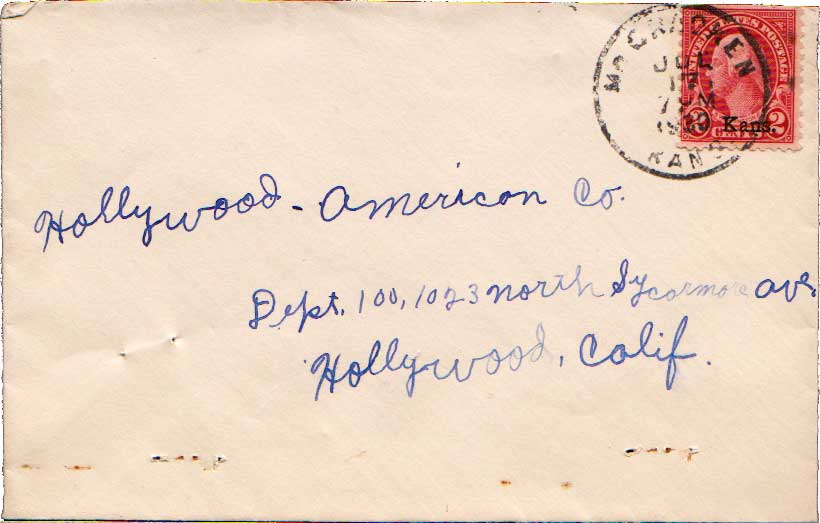 McCRACKEN
JUL
7 PM
KANS
UNITED STATES POSTAGE
2 Kans. 2
Hollywood - American Co.
Dept. 100, 1023 North Sycarmore ave.
Hollywood, Calif.